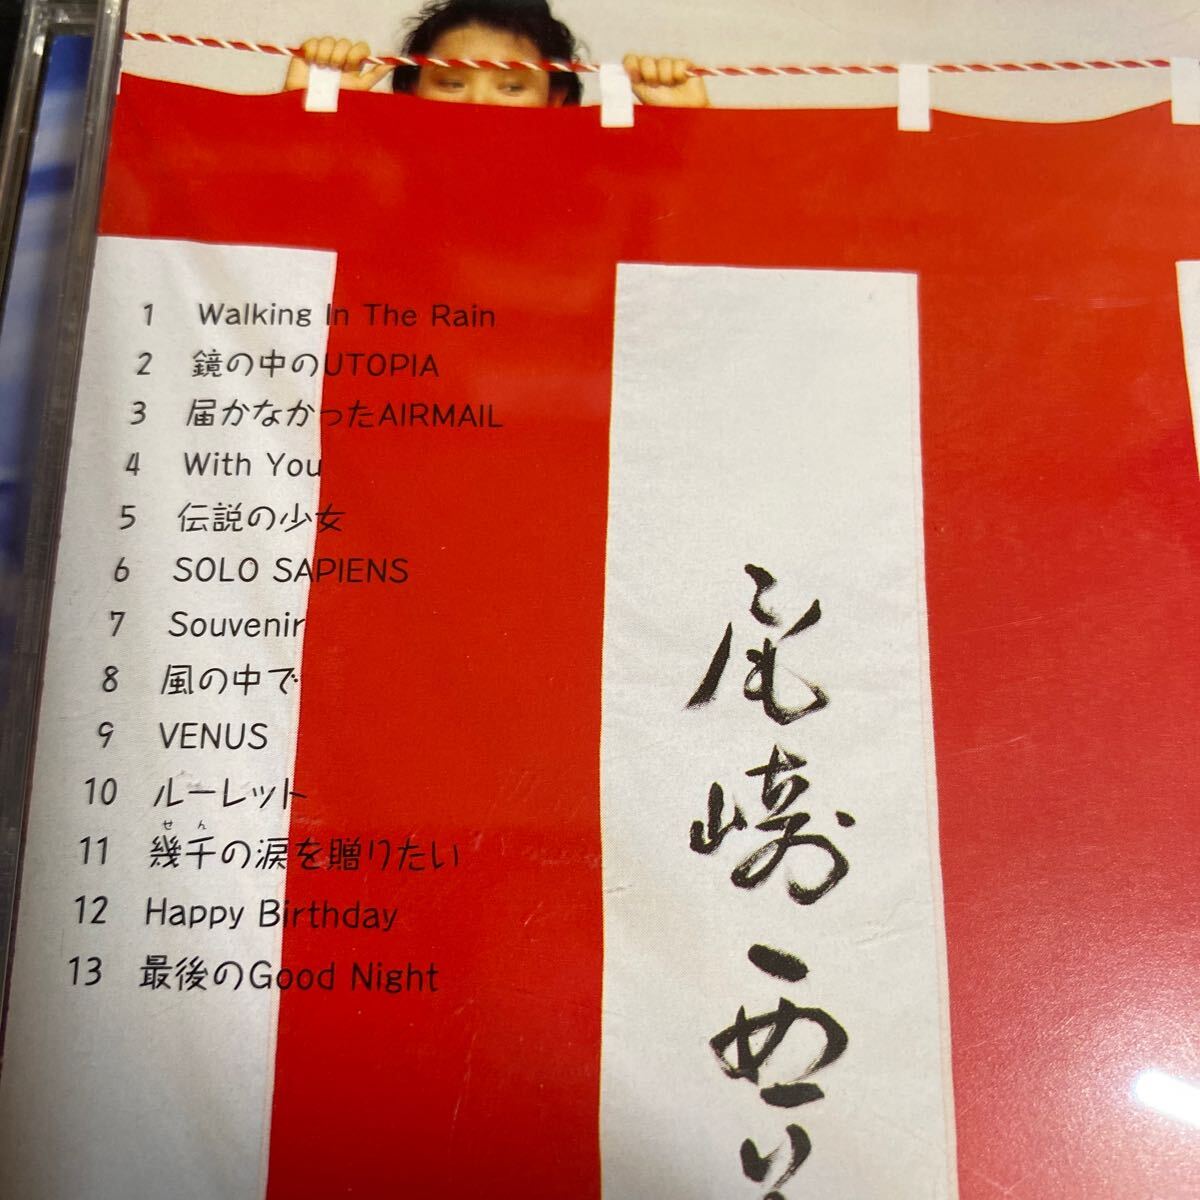 1 Walking In The Rain
2 鏡の中のUTOPIA
3 届かなかったAIRMAIL
4 With You
5 伝説の少女
6 SOLO SAPIENS
7 Souvenir
8 風の中で
9 VENUS
10 ルーレット
せん
11 幾千の涙を贈りたい
12 Happy Birthday
13 最後のGood Night
尾崎亜